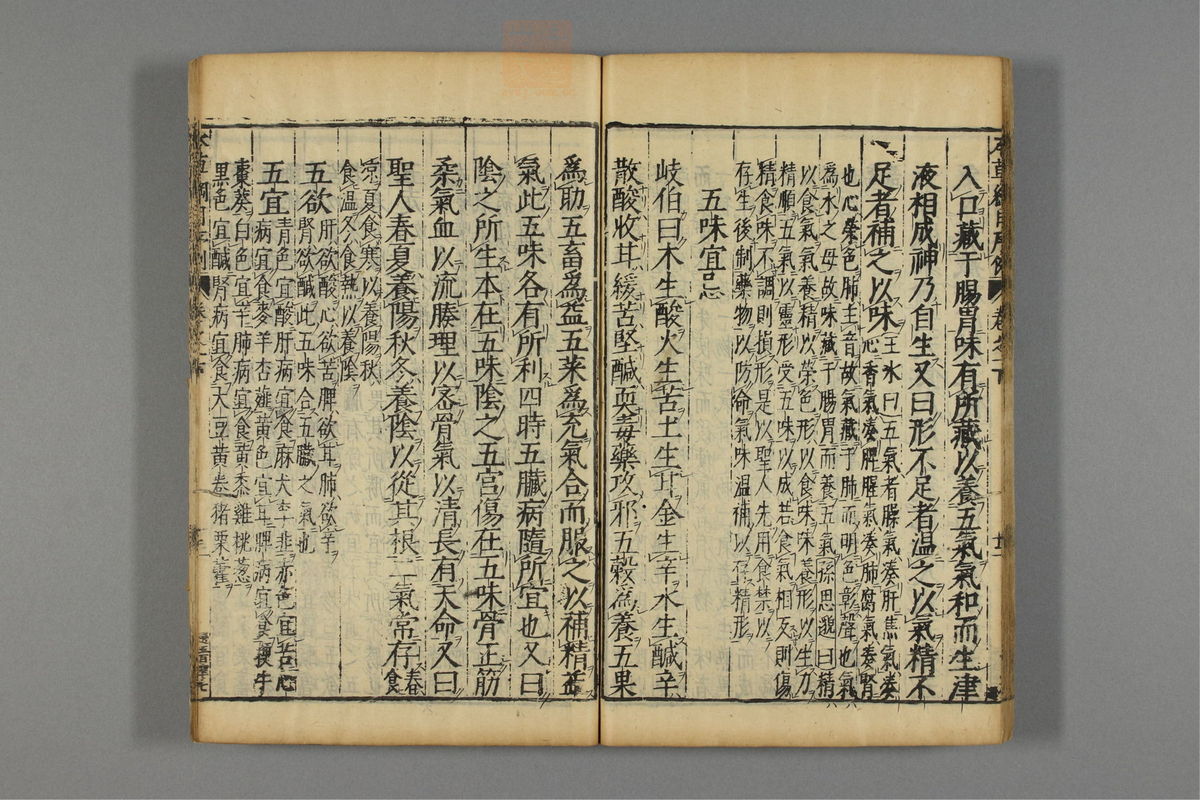 入口藏于腸胃味有所藏以養五氣氣和而生津
液相成神乃自生又曰形不足者溫之以氣精不
足者補之以味王冰曰五氣者臊氣湊肝焦氣湊
心香氣湊脾腥氣湊肺腐氣湊腎
也心榮色肺主音故氣藏于肺而明色彰聲也氣
為水之母故味藏于腸胃而養五氣孫思邈曰精
以食氣氣養精以榮色形以食味味養形以生力
精順五氣以靈形受五味以成若食氣相反則傷
精食味不調則損形是以聖人先用食禁以
存生後制藥物以防命氣味溫補以存精形
五味宜忌
岐伯曰木生酸火生苦土生甘金生辛水生鹹辛
散酸收甘緩苦堅鹹耎毒藥攻邪五穀為養五果
為助五畜為益五菜為充氣合而服之以補精益
氣此五味各有所利四時五臟病隨所宜也又曰
陰之所生本在五味陰之五宮傷在五味骨正筋
柔氣血以流腠理以密骨氣以清長有天命又曰
聖人春夏養陽秋冬養陰以從其根二氣常存春
食
涼夏食寒以養陽秋
食溫冬食熱以養陰
五欲肝欲酸心欲苦脾欲甘肺欲辛
腎欲鹹此五味合五臟之氣也
五宜青色宜酸肝病宜食麻犬李韭赤色宜苦心
病宜食麥羊杏薤黃色宜甘脾病宜食粳牛
棗葵白色宜辛肺病宜食黃黍雞桃蔥
黑色宜鹹腎病宜食大豆黃卷猪栗藿